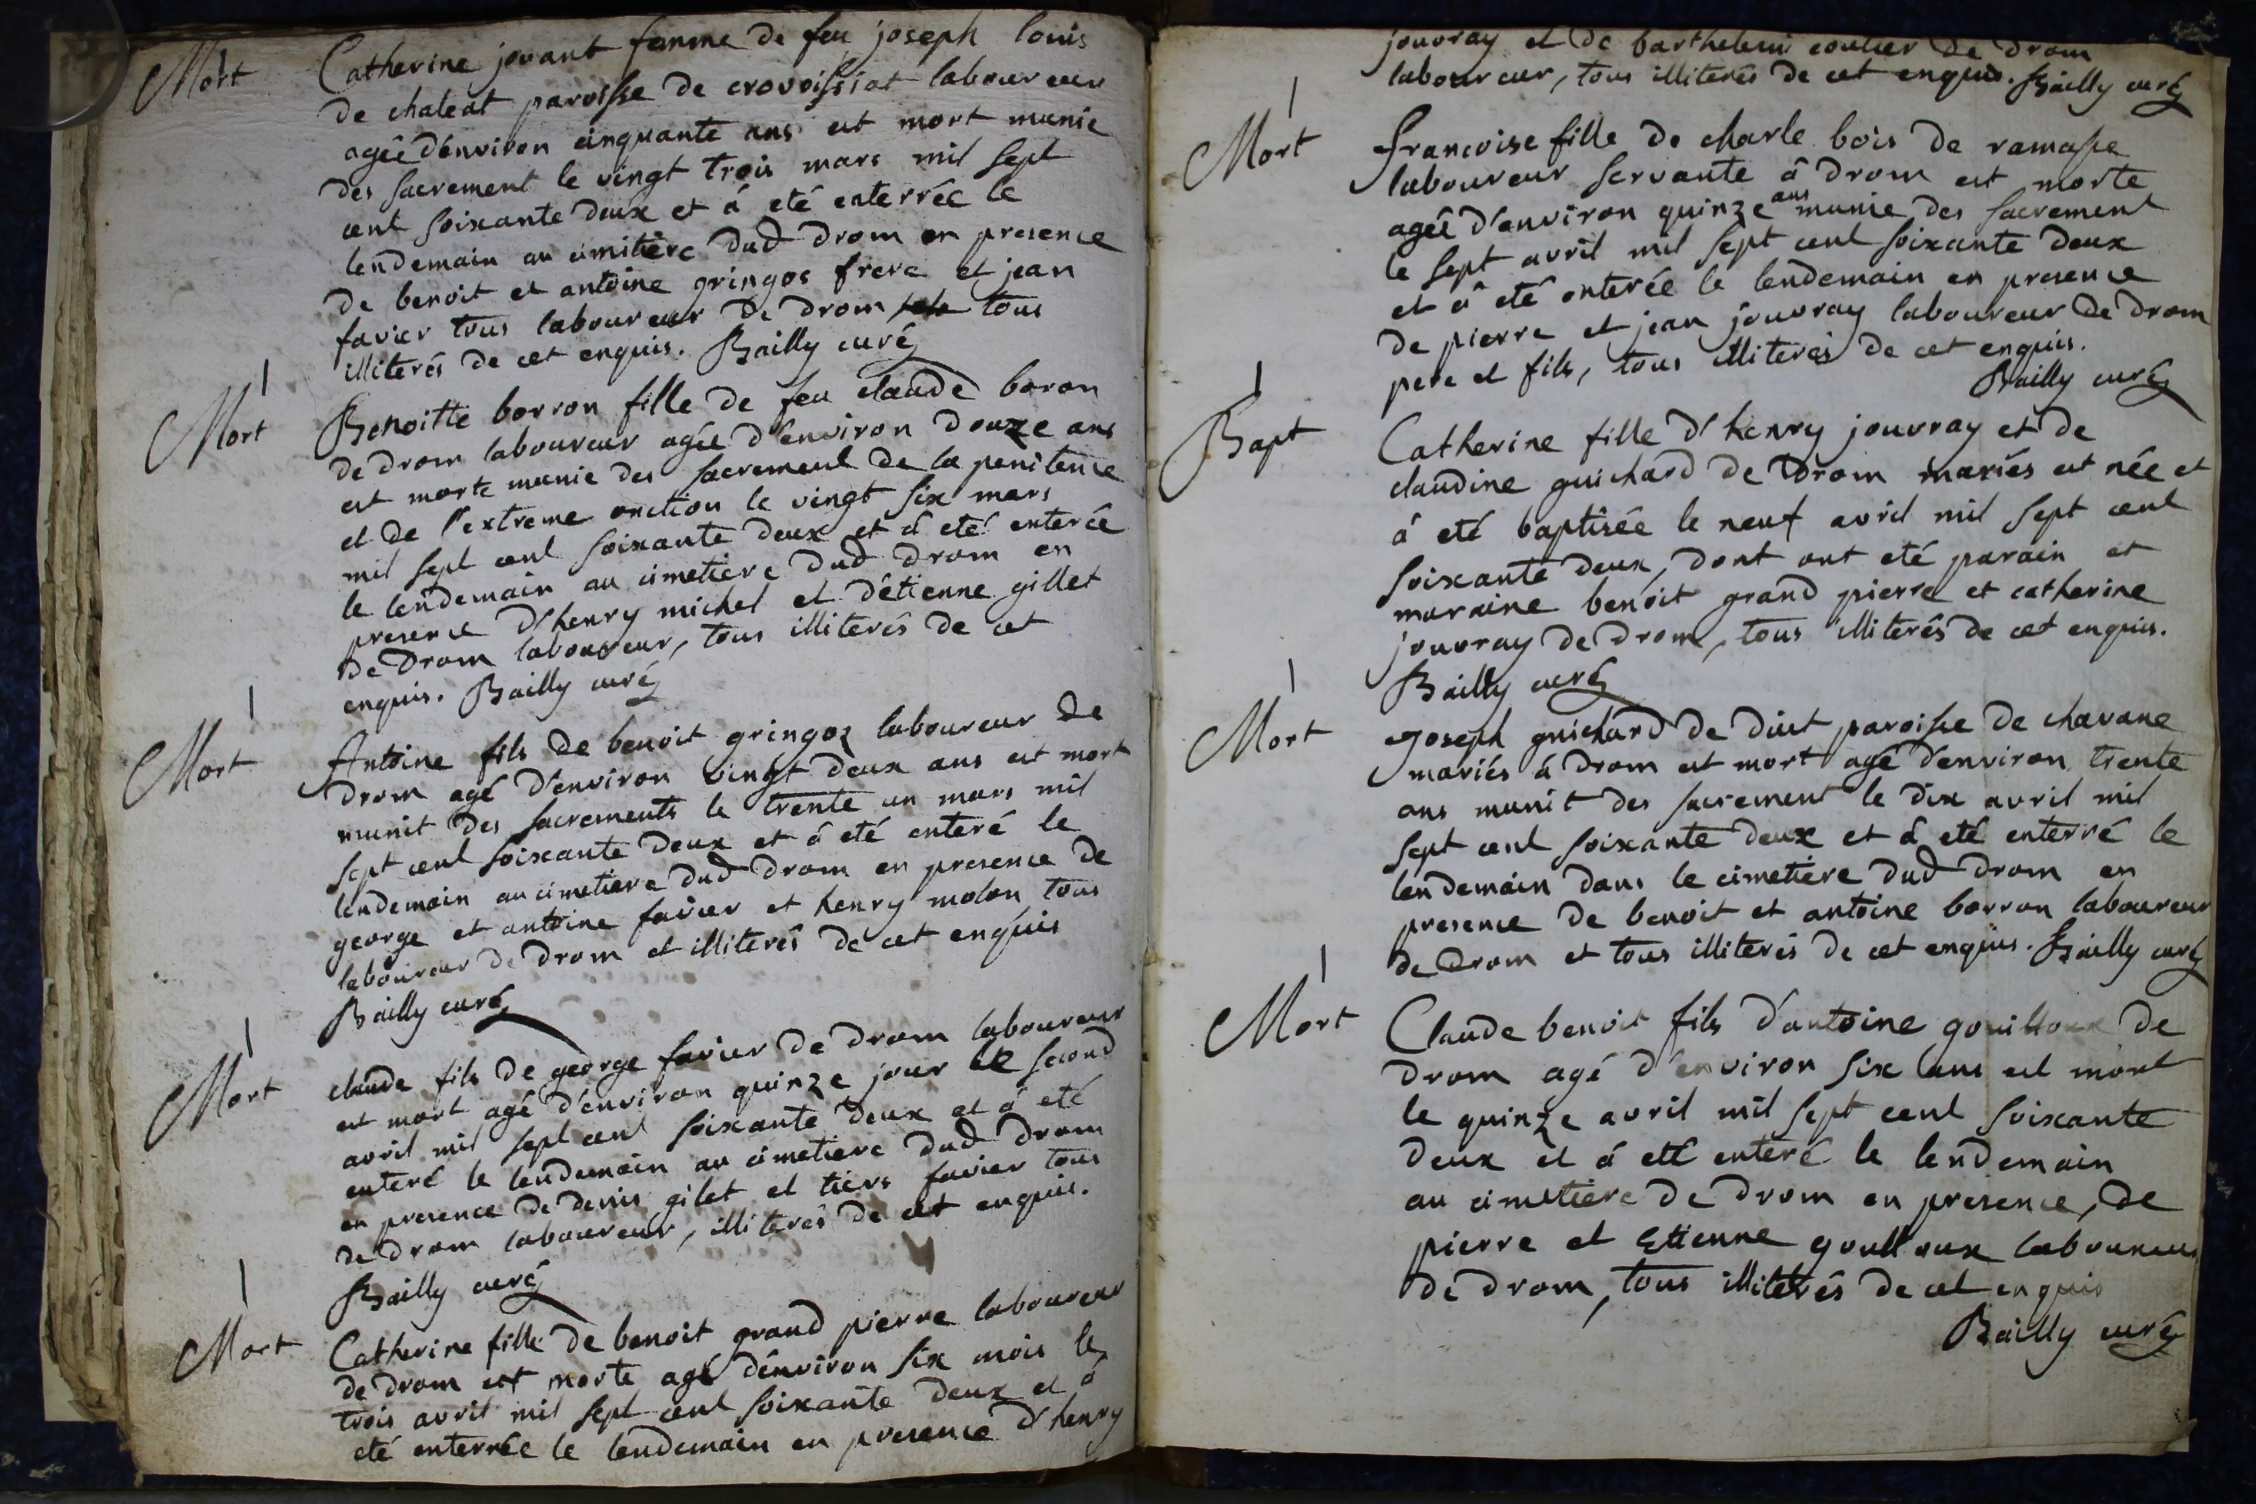 Mort
Catherine jouvant femme de feu joseph louis
de chaleat paroisse de crovoissiat laboureur
agée d'environ cinquante ans est mort munie
des sacrement le vingt trois mars mil sept
cent soixante deux et á eté enterrée le
lendemain au cimitière dud drom en presence
de benoit et antoine gringos frere et jean
favier tous laboureur de drom tous
illiterés de cet enquis. Bailly curé
Mort
Benoitte borron fille de feu claude boron
de drom laboureur agée d'environ douze ans
est morte munie des sacrement de la penitence
et de l'extreme onction le vingt six mars
mil sept cent soixante deux et á eté enterée
le lendemain au cimetiere dud drom en
presence d'henry michel et d'étienne gillet
de Drom laboureur, tous illiterés de cet
enquis. Bailly curé
Mort
Antoine fils de benoit gringoz laboureur de
drom agé d'environ vingt deux ans est mort
munit des sacrements le trente un mars mil
sept cent soixante deux et á eté enteré le
lendemain au cimetiere dud drom en presence de
george et antoine favier et henry molon tous
laboureur de drom et illiterés de cet enquis
Bailly curé
Mort
claude fils de george favier de drom laboureur
est mort agé d'environ quinze jour le second
avril mil sept cent soixante deux et á eté
enteré le lendemain au cimetiere dud drom
en presence de denis gilet et tiers favier tous
de drom laboureur, illiterés de cet enquis.
Bailly curé
Mort
Catherine fille de benoit grand pierre laboureur
de drom est morte agé d'environ six mois le
trois avril mil sept cent soixante deux et á
eté enterrée le lendemain en presence d'henry
jouvray et de barthelemi coulier de drom
laboureur, tous illiterés de cet enquis. Bailly curé
Mort
Francoise fille de charle bois de ramasse
laboureur servante á drom est morte
agée d'environ quinze ans munie des sacrement
le sept avril mil sept cent soixante deux
et á eté enterée le lendemain en presence
de pierre et jean jouvray laboureur de drom
pere et fils, tous illiterés de cet enquis.
Bailly curé
Bapt
Catherine fille d'henry jouvray et de
claudine guichard de Drom mariés est née et
á eté baptisée le neuf avril mil sept cent
soixante deux, dont ont eté parain et
maraine benoit grand pierre et catherine
jouvray de drom, tous illiterés de cet enquis.
Bailly curé
Mort
Joseph guichard de paroisse de chavane
mariés á drom est mort agé d'environ trente
ans munit des sacrement le dix avril mil
sept cent soixante deux et á eté enterré le
lendemain dans le cimetiére dud drom en
presence de benoit et antoine borron laboureur
de Drom et tous illiterés de cet enquis. Bailly curé
Mort
Claude benoit fils d'antoine gouilloux de
drom agé d'environ six ans est mort
le quinze avril mil sept cent soixante
deux et á eté enteré le lendemain
au cimetiere de drom en presence, de
pierre et Etienne goulloux laboureur
de drom, tous illiterés de cet enquis
Bailly curé